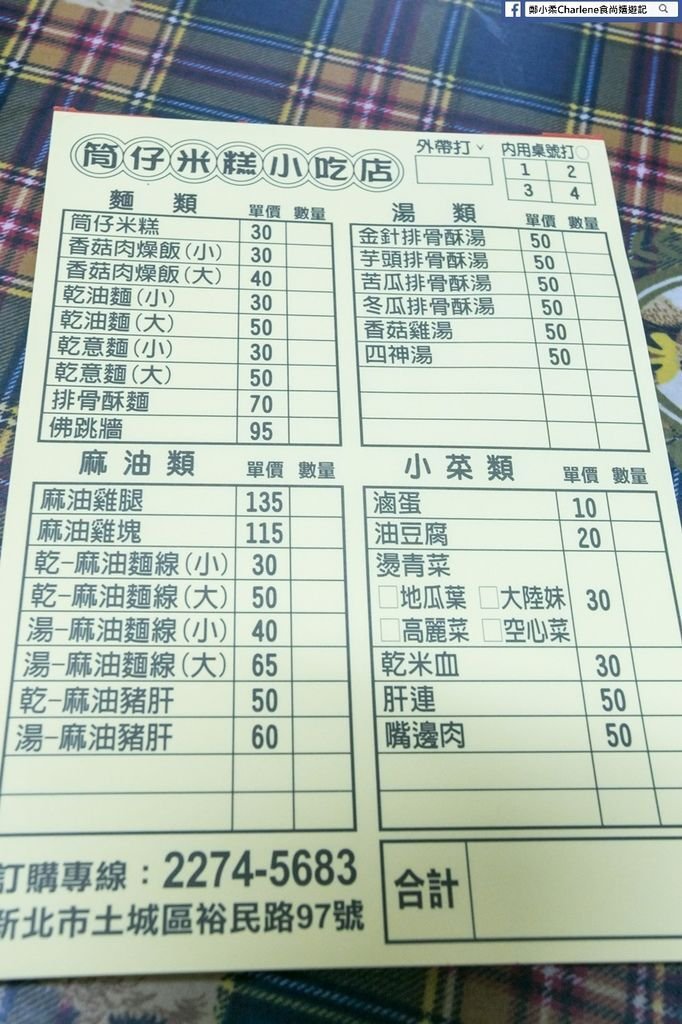 鄭小柔Charlene食尚嬉遊記
筒仔米糕小吃店
外帶打ˇ
內用桌號打○
1 2
3 4
麵類 單價 數量
筒仔米糕 30
香菇肉燥飯(小) 30
香菇肉燥飯(大) 40
乾油麵(小) 30
乾油麵(大) 50
乾意麵(小) 30
乾意麵(大) 50
排骨酥麵 70
佛跳牆 95
湯類 單價 數量
金針排骨酥湯 50
芋頭排骨酥湯 50
苦瓜排骨酥湯 50
冬瓜排骨酥湯 50
香菇雞湯 50
四神湯 50
麻油類 單價 數量
麻油雞腿 135
麻油雞塊 115
乾-麻油麵線(小) 30
乾-麻油麵線(大) 50
湯-麻油麵線(小) 40
湯-麻油麵線(大) 65
乾-麻油豬肝 50
湯-麻油豬肝 60
小菜類 單價 數量
滷蛋 10
油豆腐 20
燙青菜 30
□地瓜葉 □大陸妹
□高麗菜 □空心菜
乾米血 30
肝連 50
嘴邊肉 50
訂購專線：2274-5683
新北市土城區裕民路97號
合計